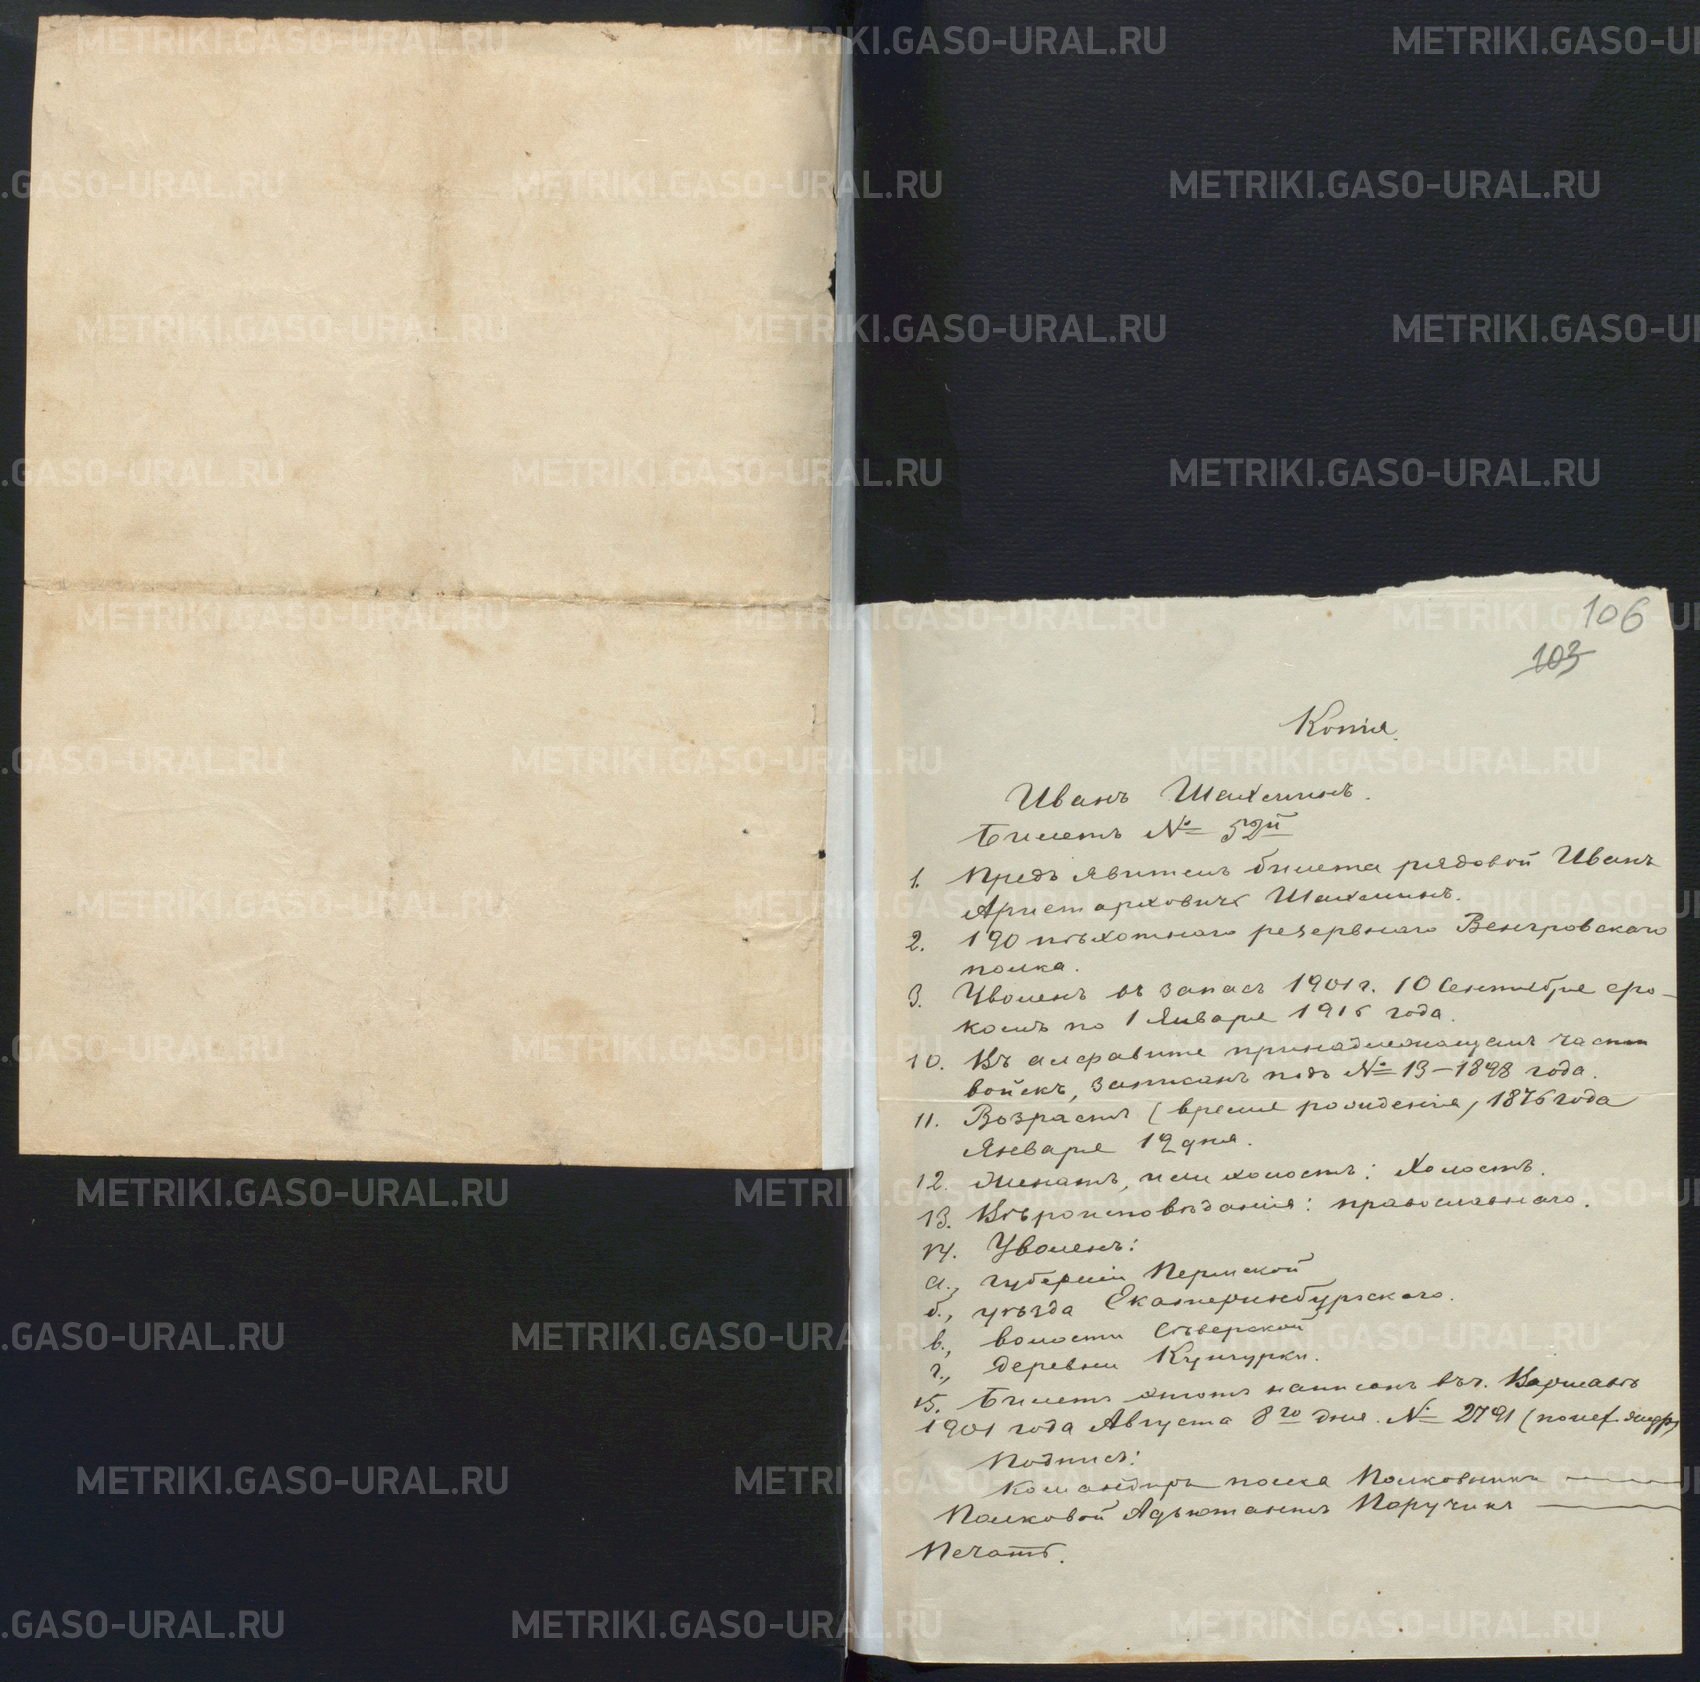 106
103
Копія.
Иванъ Шахминъ.
Билетъ № 52й
1. Предъявитель билета рядовой Иванъ
Аристарховичъ Шахминъ.
2. 190 пѣхотнаго резервнаго Венгровскаго
полка.
3. Уволенъ въ запасъ 1901 г. 10 Сентября сро-
комъ по 1 Января 1916 года.
10. Въ алфавите принадлежащемъ части
войскъ, записанъ подъ № 13-1898 года.
11. Возрастъ (время рожденія) 1876 года
Января 12 дня.
12. Женатъ, или холостъ: Холостъ.
13. Вѣроисповѣданія: православнаго.
14. Уволенъ:
а., губерніи Пермской
б., уѣзда Екатеринбургскаго.
в., волости Сѣверской
г., деревни Кунгурки.
15. Билетъ этотъ написанъ въ г.
1901 года Августа 8го дня. № 2791
Подписъ:
Командиръ полка Полковникъ
Полковой Адъютантъ Поручикъ
Печать.
METRIKI.GASO-URAL.RU